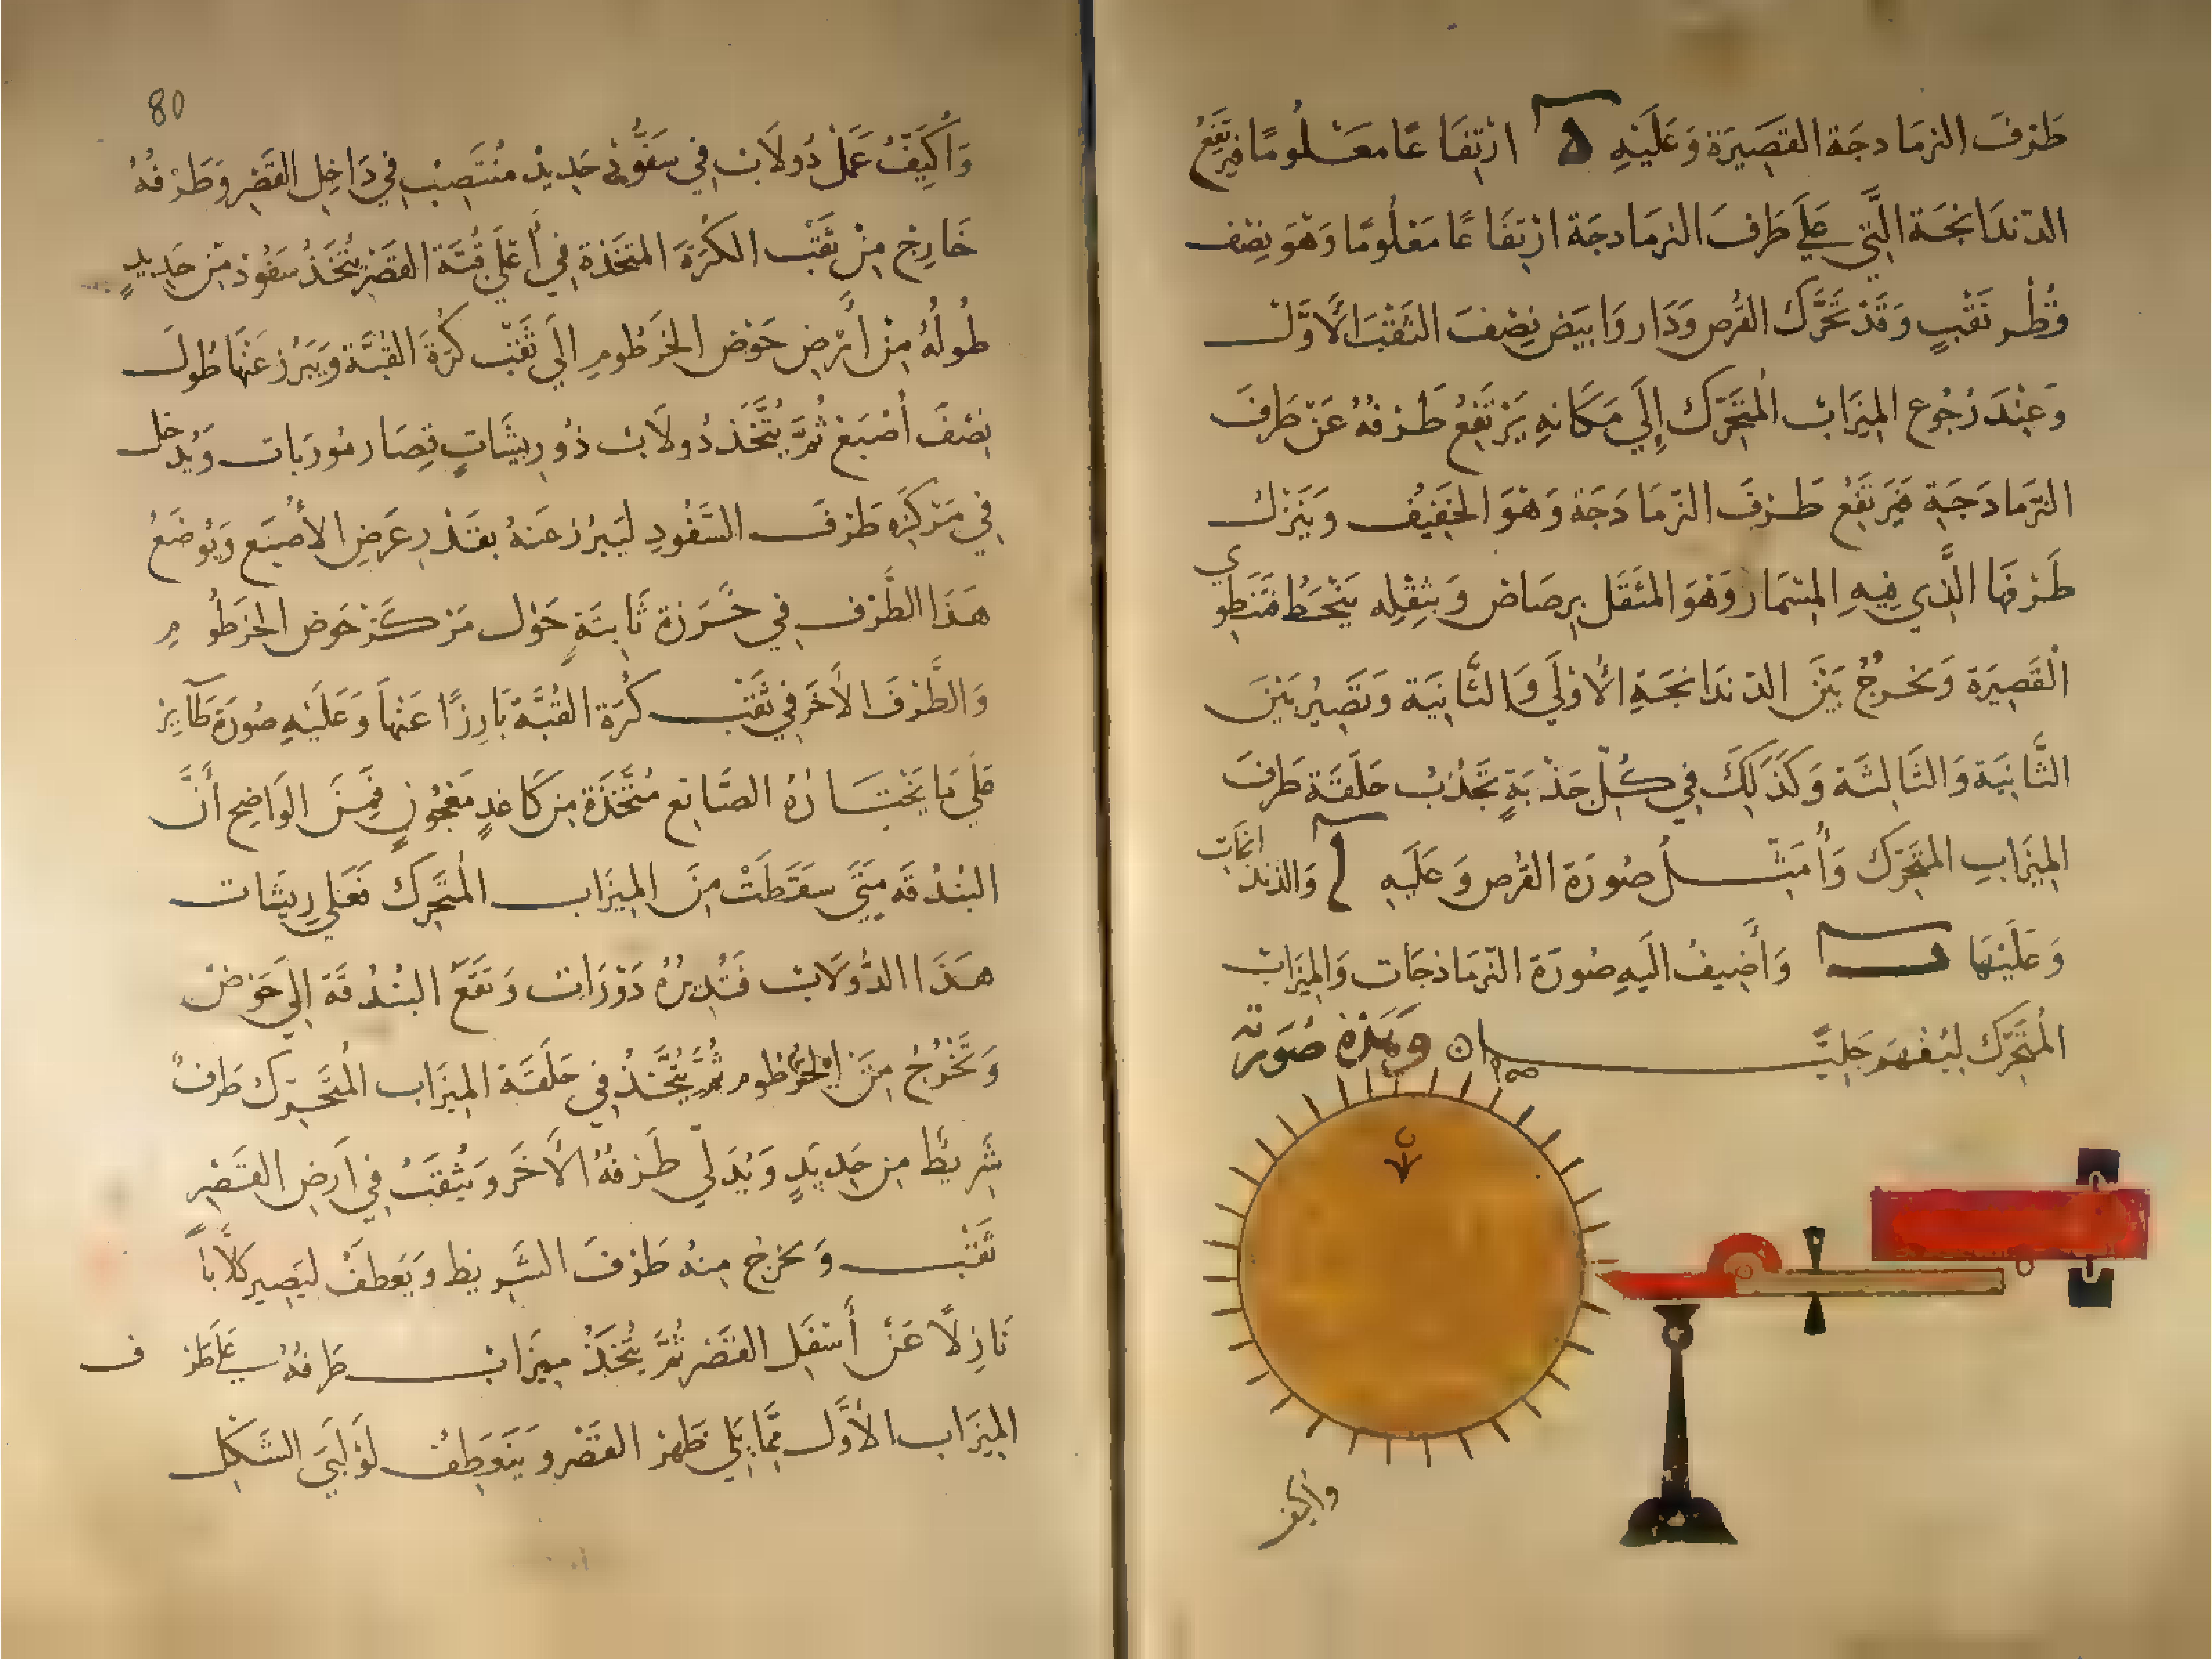 طَرَفَ النرمَادجَة القَصِيرَة وَعَلَيْهِ ه ارْتِفَاعًا مَعْلُومًا فيَرتَفِعُ
الدَندَانجَة الَّتِي عَلَى طَرفَ النرمَادجَة ارْتِفَاعًا مَعْلُومًا وَهْوَ نِصْف
قُطْر نَقْبٍ وَقَدْ تَحَرَّك القُرص وَدَار وَابيَض نِصْفَ النَقْبَ الأَوَّل
وَعِنْدَ رُجُوع المِيزَاب المُتَحَرِّك إِلَى مَكَانِهِ يَرْتَفِعُ طَرْفهُ عَنْ طَرفَ
النَرمَادَجَةِ فَيَرتَفِعُ طَرفَ النَرمَا دَجَة وَهْوَ الخَفِيْف وَيَنزلُ
طَرْفهَا الَّذِي فِيهِ المِسْمَار وَهْوَ المُثقَل بِرصَاص وَبثِقْلِه يَنْحَطُ فتَنَطوي
القَصِيرَة وَتخرجُ بَيْنَ الدَندَانجَةِ الأُولَى وَالثَّانِيَة وَتَصِيْرُ بَيْنَ
الثَّانِيَة وَالثَالِثَة وَكَذَلِكَ فِي كُلّ جَذْبَةٍ تَجْذُبُ حَلَقَة طَرفَ
المِيزَابِ المتَحَرِّك وَأُمَثِّلُ صُورَة القُرص وَعَلَيهِ ل وَالدندانجَات
وَعَلَيْهَا ب وَأَضِيفُ الَيهِ صُورَة النّرمَاذجَات وَالمِيْزَابْ
المُتَحَرِّك لِيُفهَمَ جَلِيًّا وَهَذِهْ صُوَرته
ل
واكيف
80
وَأُكَيِّفُ عَمَلْ دُولَابْ فِي سَفُّودْ حَدِيدْ مُنْتَصِبْ فِي دَاخِل القَصْر وَطَرْفُهُ
خَارِجْ مِنْ ثَقْبْ الكُرَة المتَخَذَة فِي أَعْلَى قُبَّة القَصْر يُتَّخَذُ سَفُود مِّن حَدِيدٍ
طُولُهُ مِنْ أَرْضِ حَوْض الخَرْطُومِ الَى ثَقْبْ كُرَة القُبَّة وَيَبْرُز عَنْهَا طُولَ
نِصْفَ أُصْبَعْ ثُمَّ يُتَّخَذ دُولَابْ ذُو رِيشَاتٍ قِصَار مُورَبَات وَيُدخل
فِي مَرْكَزِه طَرْفَ السَّفُودِ ليَبْرُز عَنهُ بقَدْرِ عَرَضِ الأُصْبَع وَيُوضَعُ
هَذَا الطَّرْف فِي خَرَزة ثَابتَةٍ حَوْل مَرْكَز حَوض الخَرطُومِ
وَالطَّرَفَ الأَخَر فِي ثَقْبْ كُرَة القُبَّة بَارِزًا عَنْهَا وَعَلَيْهِ صُورَة طَآيِر
عَلَى مَا يَخْتَارُهُ الصَّانِع مُتَّخَذَة مِن كَاغدٍ مَعْجُونٍ فَمِنَ الوَاضِح أَنَّ
البُندُقَة مَتَى سَقَطَتْ مِنَ المِيزَاب المُتَحَرِك فَعَلَى رِيشَات
هَذَا الدُّولَاب فَتُدِيْرُهُ دَوْرَات وَتَقَعُ البُنْدُقَة الَى حَوْضْ
وَتَخْرُجُ مِنَ الخُرطُوم ثُمَّ يُتَّخَذُ فِي حَلَقَة المِيزَاب المُتَحَرِك طَرَفُ
شَرِيطٌ مِن حَدِيدٍ وَيُدَلّى طَرْفهُ الأَخَر وَيُثْقَبُ فِي اَرضِ القَصْرِ
ثَقْبْ وَيَخرج مِنهُ طَرْفَ الشَرِيط وَيعْطَفُ ليَصِير كلَّابًا
نَازِلاً عَنْ أَسْفَل القَصْر ثُمَّ يُتّخَذُ مِيزَاب طرفهُ عَلى طَرف
المِيزَاب الأَوَّل مِمَّا يَلِي ظَهرَ القَصْر وَيَنعَطِفْ لَوْلَبيَ الشَكِل